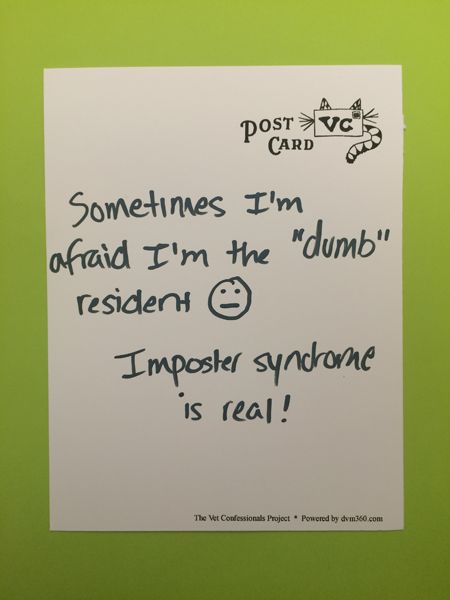 POST CARD
VC
Sometimes I'm
afraid I'm the "dumb"
resident
Imposter syndrome
is real!
The Vet Confessionals Project * Powered by dvm360.com